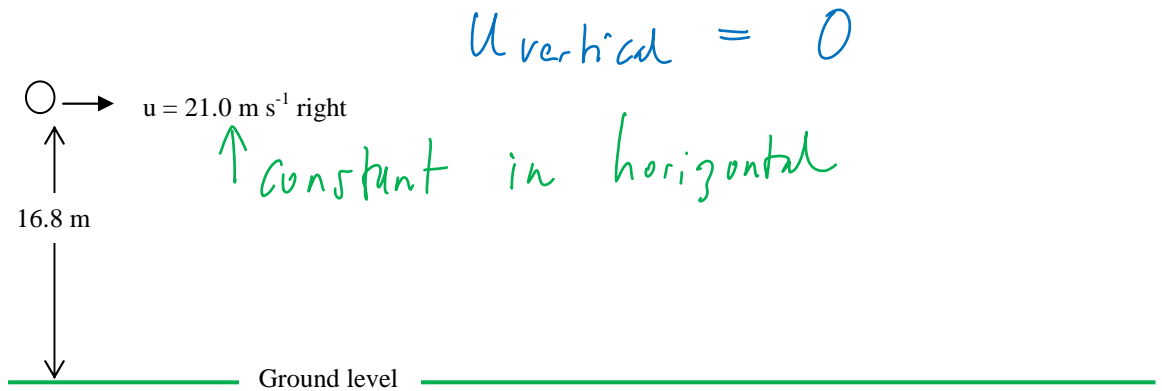 U vertical = 0
u = 21.0 m s⁻¹ right
constant in horizontal
16.8 m
Ground level